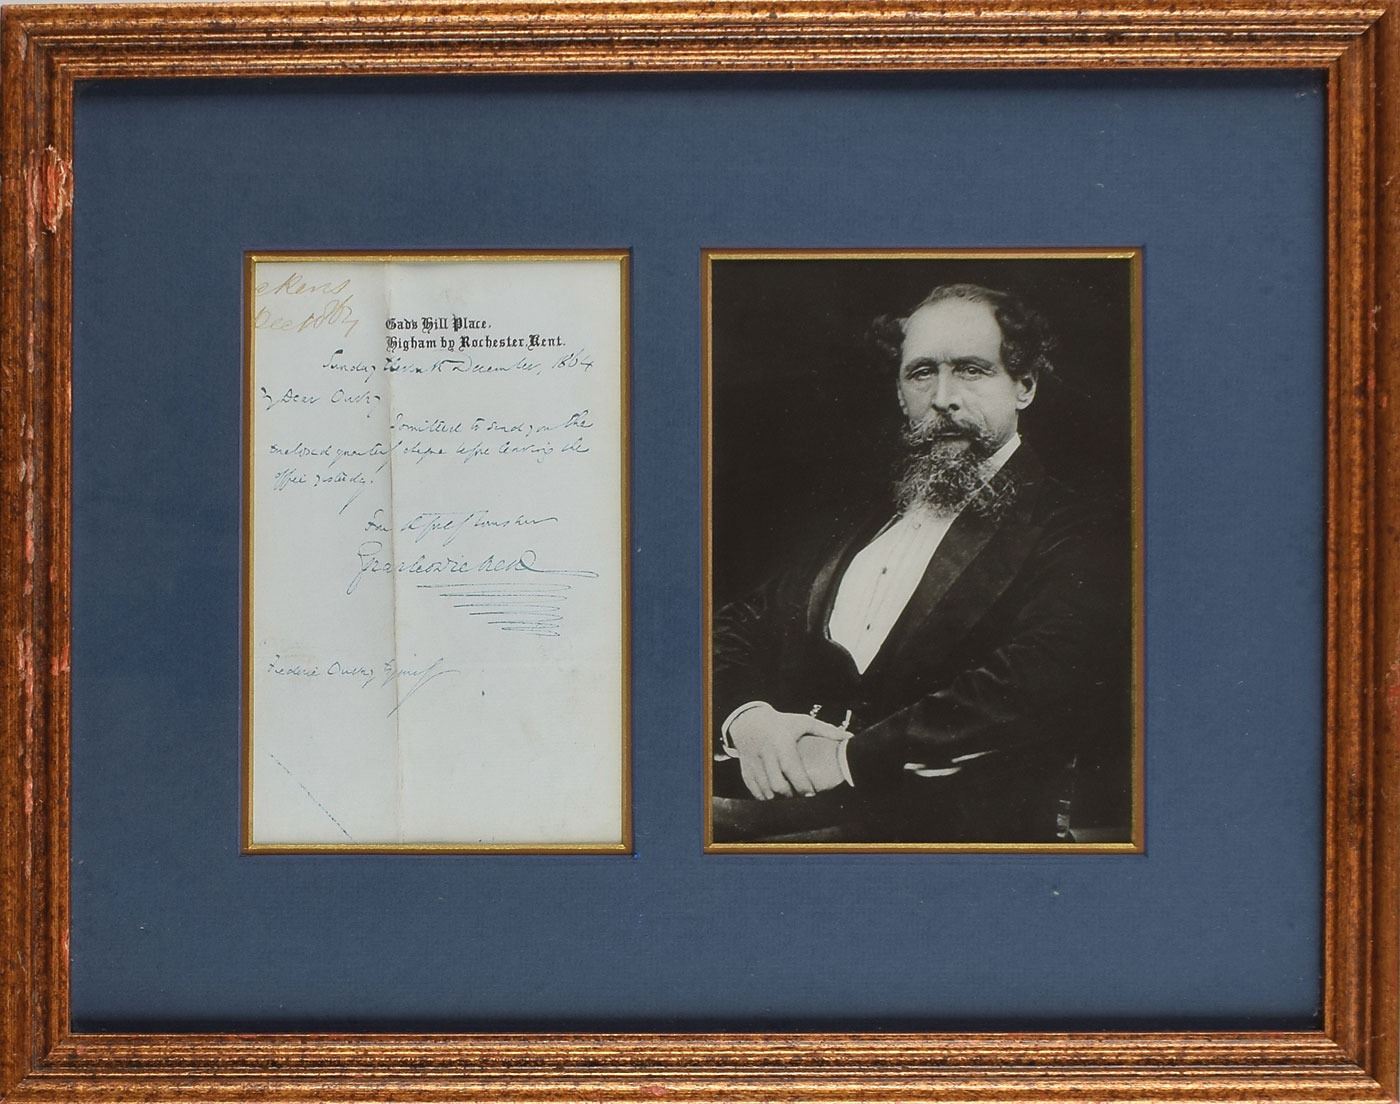 ckens
Dec 1864
Gad's Hill Place.
Higham by Rochester, Kent.
Sunday Eleventh December, 1864
My Dear Ouvry
I omitted to send you the
enclosed quarter's cheque before leaving the
office yesterday.
Faithfully Yours ever
Charles Dickens
Frederic Ouvry Esquire